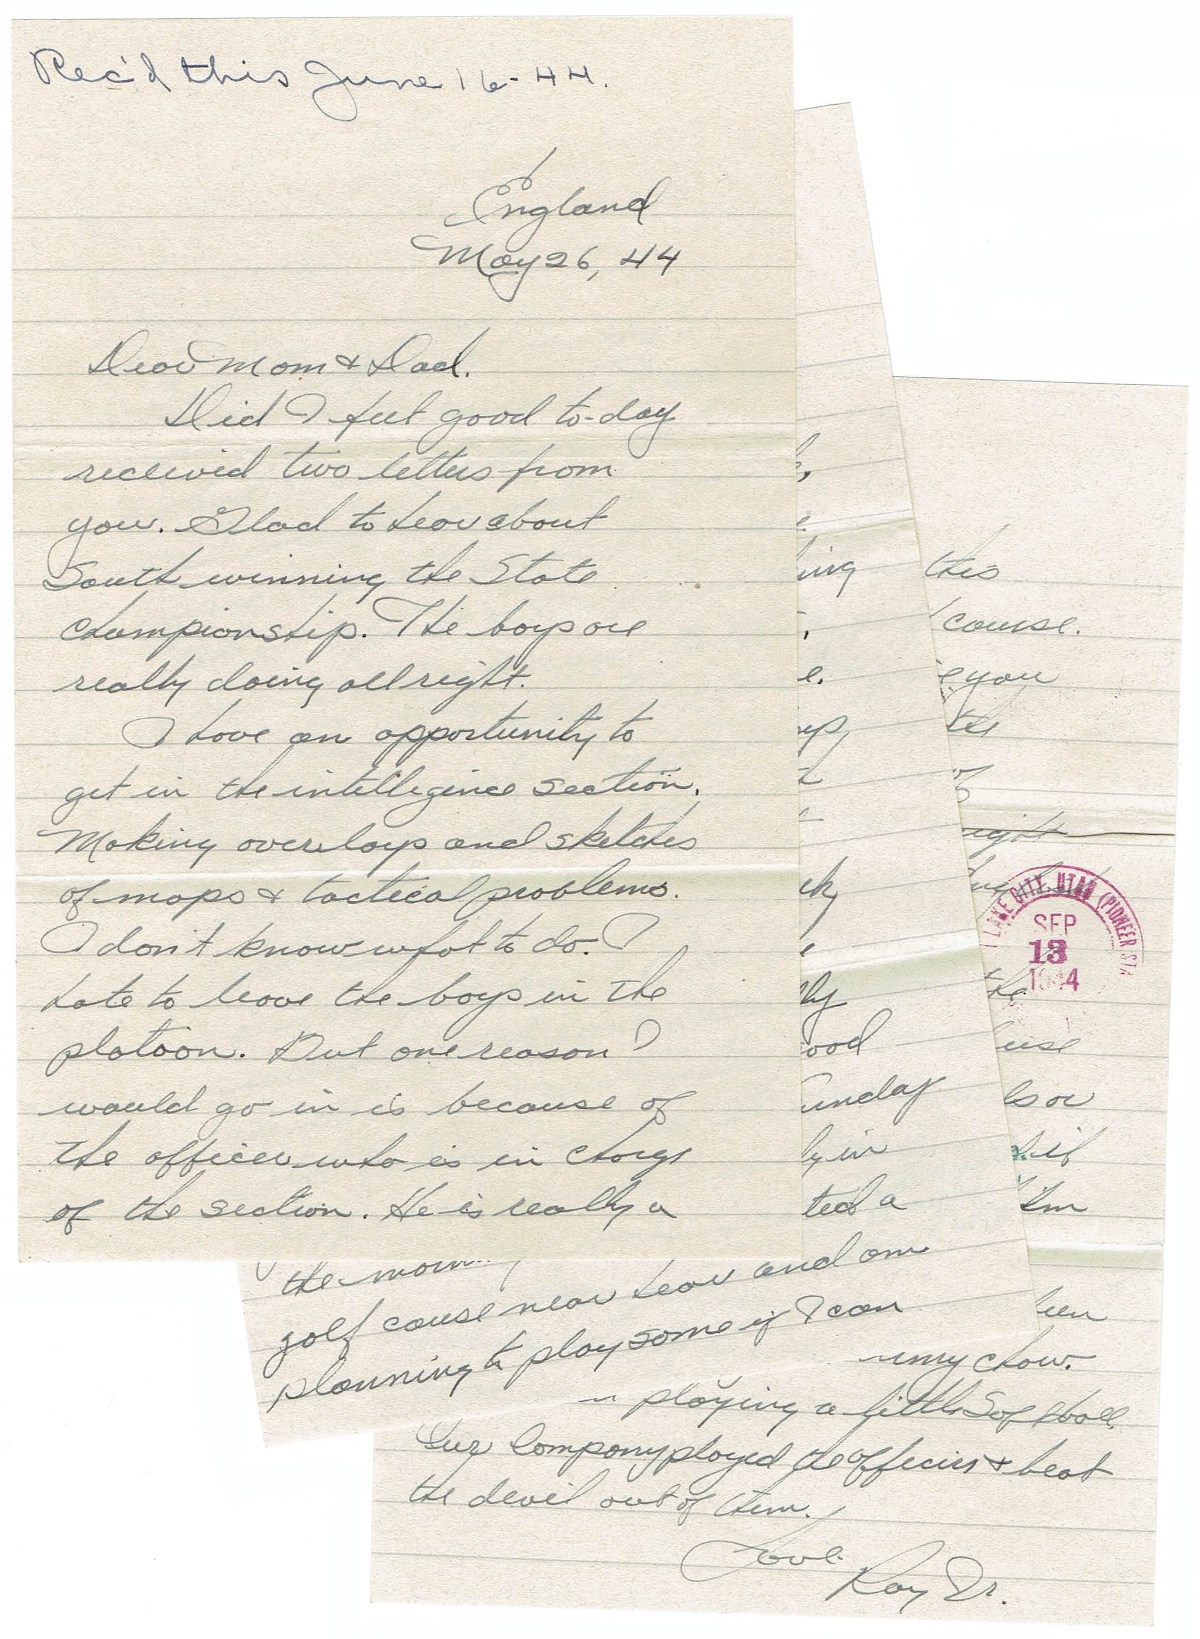 Rec'd this June 16-44.
England
May 26, 44
Dear Mom & Dad.
Did I feel good to-day
received two letters from
you. Glad to hear about
South winning the State
championship. The boys are
really doing all right.
I have an opportunity to
get in the intelligence section.
Making overlays and sketches
of maps & tactical problems.
I don't know what to do. I
hate to leave the boys in the
platoon. But one reason I
would go in is because of
the officer who is in charge
of the section. He is really a
ood
unday
ly in
ted a
the morn
golf cause near hear and am
planning to play some if I can
this
cause.
you
the
of
right
LAKE CITY, UTAH (PIONEER STA
SEP
13
1944
the
use
if
een
my chow.
playing a little Soft ball.
Our Company played the officers & beat
the devil out of them.
Love.
Roy Jr.